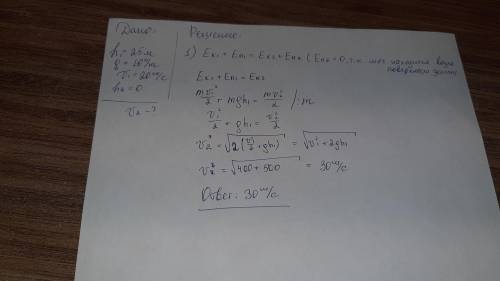 Дано:
h₁ = 25 м
g = 10 м/с²
v₁ = 20 м/с
h₂ = 0
v₂ - ?
Решение:
1) Eк₁ + Eп₁ = Eк₂ + Eп₂ (Eп₂ = 0, т.к. мяч находится
поверхности земли
Eк₁ + Eп₁ = Eк₂
mv₁²/2 + mgh₁ = mv₂²/2 /:m
v₁²/2 + gh₁ = v₂²/2
v₂ = √(2(v₁²/2 + gh₁)) = √(v₁² + 2gh₁)
v₂ = √(400 + 500) = 30 м/с
Ответ: 30 м/с